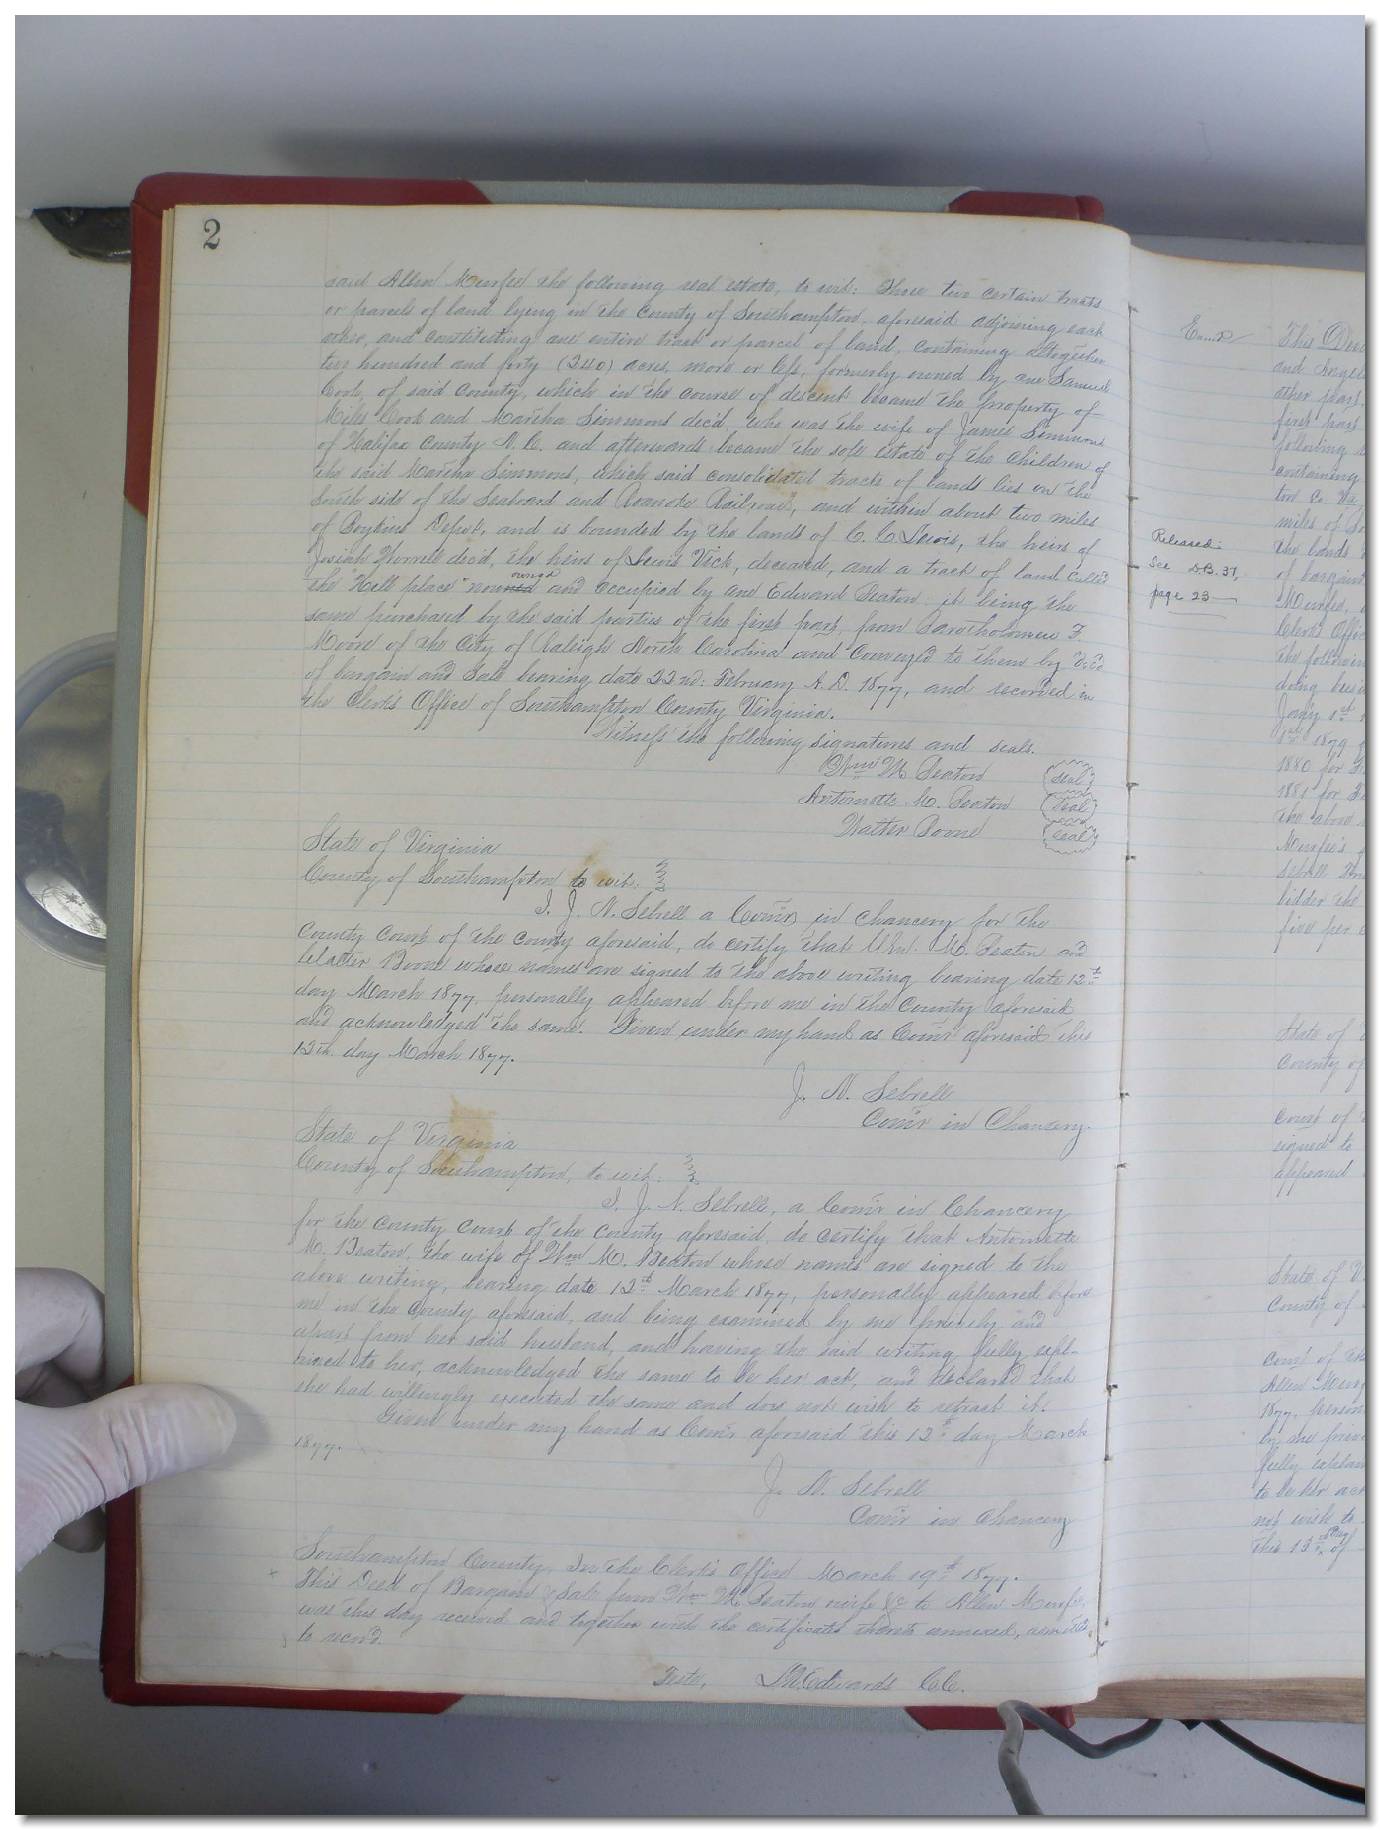 2
said Allen Murfee the following real estate, to wit: Those two certain tracts
or parcels of land lying in the County of Southampton aforesaid adjoining each
other, and constituting one entire tract or parcel of land, containing altogether
two hundred and forty (240) acres, more or less, formerly owned by one Samuel
Cook, of said County, which in the course of descent became the property of
Miles Cook and Martha Simmons dec'd, who was the wife of James Simmons
of Halifax County N.C. and afterwards became the sole estate of the children of
the said Martha Simmons, which said consolidated tracts of lands lies on the
South side of the Seaboard and Roanoke Railroad, and within about two miles
of Boykins Depot, and is bounded by the lands of C. C. Lewis, the heirs of
Josiah Worrell dec'd, the heirs of Lewis Vick, deceased, and a tract of land called
the "Hill place" now owned and occupied by one Edward Beaton it being the
same purchased by the said parties of the first part, from Bartholomew F.
Moore of the City of Raleigh North Carolina and conveyed to them by deed
of bargain and sale bearing date 22nd: February A.D. 1877, and recorded in
the Clerk's Office of Southampton County Virginia.
Witness the following signatures and seals.
Wm M. Beaton (seal)
Antoinette M. Beaton (seal)
Walter Boone (seal)
State of Virginia
County of Southampton to wit:
I. J. N. Sebrell a Com'r, in chancery for the
County Court of the county aforesaid, do certify that Wm. M. Beaton and
Walter Boone whose names are signed to the above writing bearing date 12th
day March 1877, personally appeared before me in the County aforesaid
and acknowledged the same. Given under my hand as Com'r aforesaid this
12th day March 1877.
J. N. Sebrell
Com'r in Chancery.
State of Virginia
County of Southampton, to wit:
I. J. N. Sebrell, a Com'r in Chancery
for the County Court of the County aforesaid, do certify that Antoinette
M. Beaton, the wife of Wm M. Beaton whose names are signed to the
above writing, bearing date 12th March 1877, personally appeared before
me in the County aforesaid, and being examined by me privily and
apart from her said husband, and having the said writing fully expl-
ained to her, acknowledged the same to be her act, and declared that
she had willingly executed the same and does not wish to retract it.
Given under my hand as Com'r aforesaid this 12th day March
1877.
J. N. Sebrell
Com'r in Chancery
Southampton County, In the Clerk's Office March 19th 1877.
This Deed of Bargain & Sale from Wm M. Beaton wife &c to Allen Murfee,
was this day received and together with the certificates thereto annexed, admitted
to record.
Teste, Edwards C.C.
Exm'd
Released
See D.B. 37,
page 23
This Deed
and
other part,
first part
following
containing
miles of
the lands
of bargain
Murfee,
Clerk's Office
the following
doing
1879
1880 for
1881 for
the above
Murfee's
Sebrell
bidder the
five per
State of
County of
Court of
signed to
appeared
State of V
County of
Court of the
Allen Murf
1877, person
by me privi
fully explain
to be her act
not wish to
this 13th day of